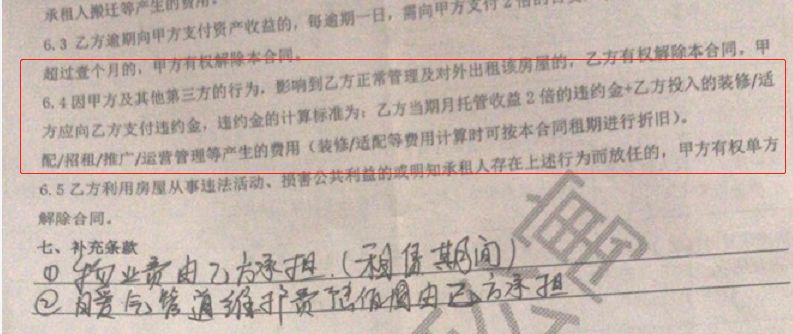 承租人搬迁等产生的费用。
6.3 乙方逾期向甲方支付资产收益的，每逾期一日，需向甲方支付 2 倍的日
超过壹个月的，甲方有权解除本合同。
6.4 因甲方及其他第三方的行为，影响到乙方正常管理及对外出租该房屋的，乙方有权解除本合同，甲
方应向乙方支付违约金，违约金的计算标准为：乙方当期月托管收益 2 倍的违约金+乙方投入的装修/适
配/招租/推广/运营管理等产生的费用（装修/适配等费用计算时可按本合同租期进行折旧）。
6.5 乙方利用房屋从事违法活动、损害公共利益的或明知承租人存在上述行为而放任的，甲方有权单方
解除合同。
七、补充条款
① 物业费由乙方承担.（租赁期间）
② 暖气管道维护费 由乙方承担